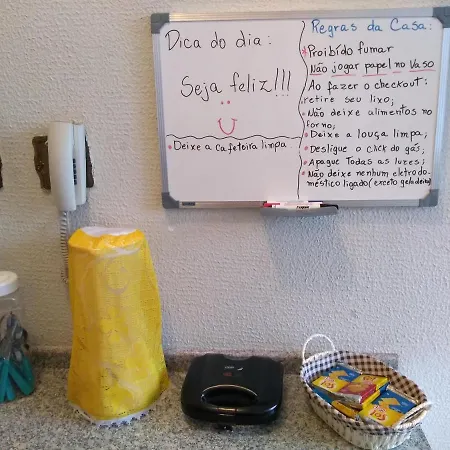 Dica do dia:
Seja feliz!!!
• Deixe a Cafeteira limpa
Regras da Casa:
*Proibido fumar
Não jogar papel no Vaso
Ao fazer o checkout:
retire seu lixo;
• Não deixe alimentos no
forno;
• Deixe a louça limpa;
• Desligue o click do gás;
• Apague Todas as luzes;
• Não deixe nenhum eletrodo-
méstico ligado (exceto geladeira)